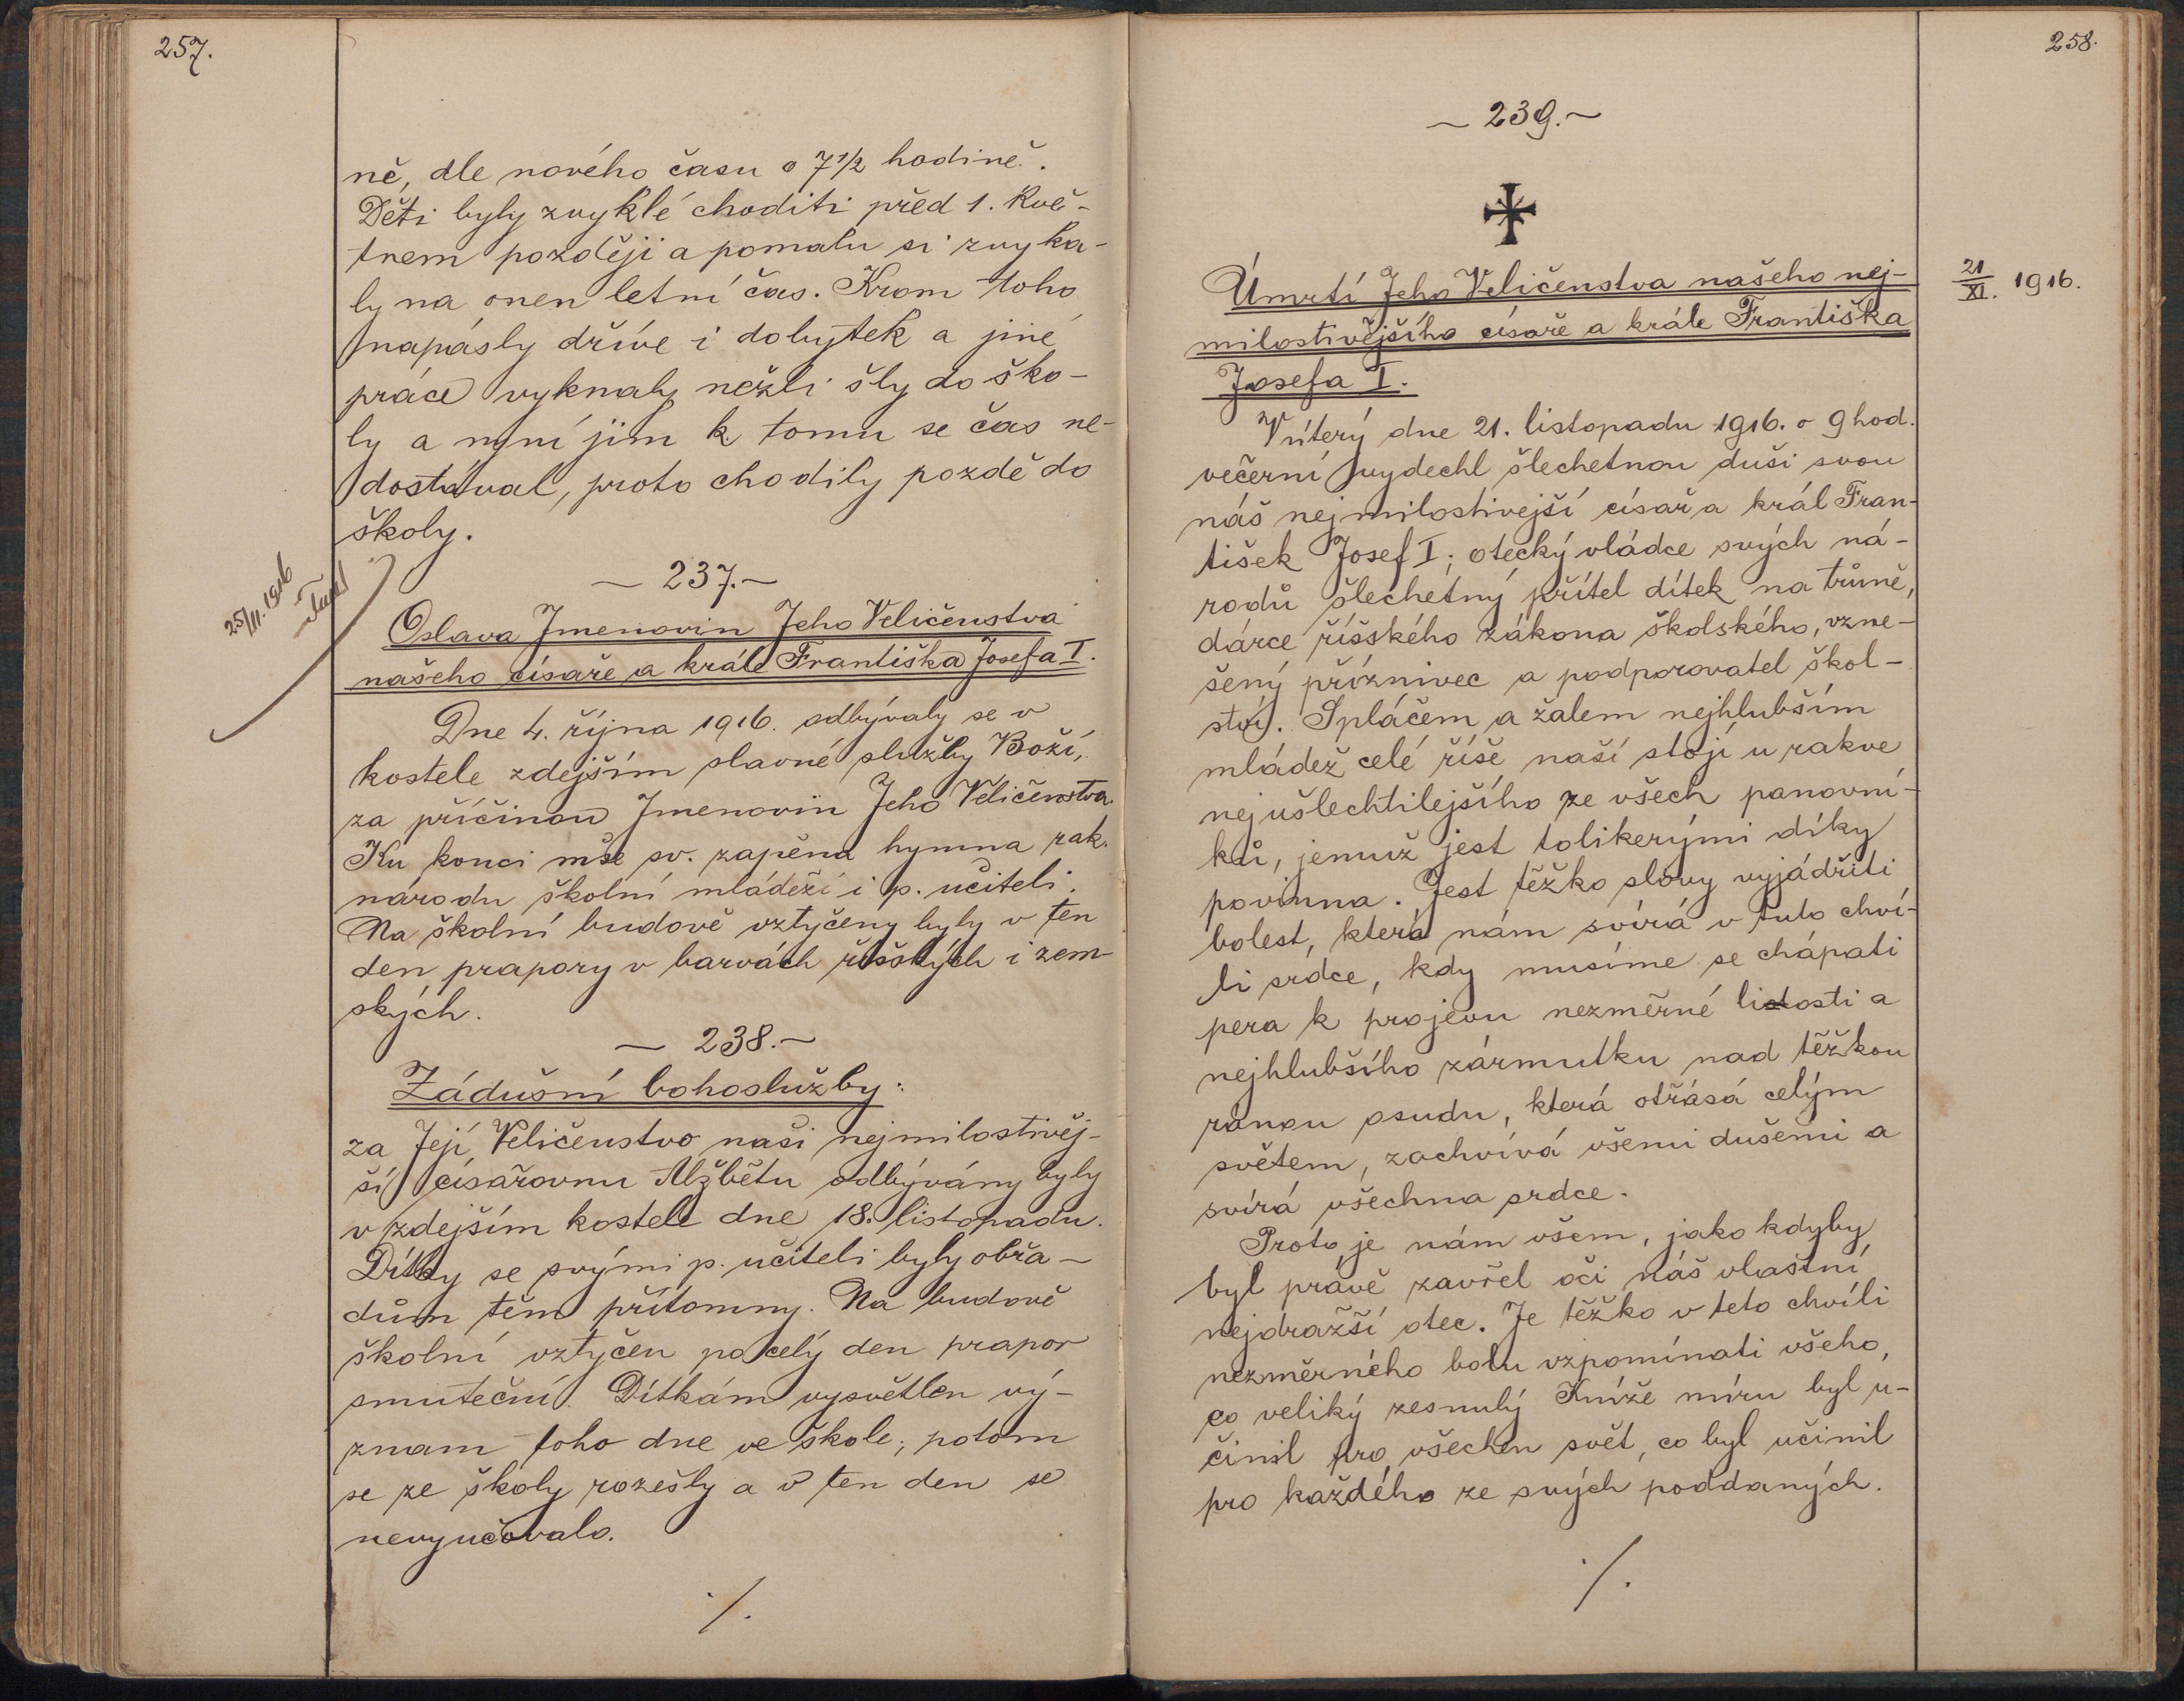 257.
ně, dle nového času o 7 1/2 hodině.
Děti byly zvyklé choditi před 1. Kvě-
tnem později a pomalu si zvyka-
ly na onen letní čas. Krom toho
napásly dříve i dobytek a jiné
práce vyknaly nežli šly do ško-
ly a nyní jim k tomu se čas ne-
dostával, proto chodily pozdě do
školy.
25/11. 1916
— 237. —
Oslava Jmenovin Jeho Veličenstva
našeho císaře a krále Františka Josefa I.
Dne 4. října 1916. odbývaly se v
kostele zdejším slavné služby Boží,
za příčinou Jmenovin Jeho Veličenstva.
Ku konci mše sv. zapěna hymna rak.
národu školní mládeží i p. učiteli.
Na školní budově vztyčeny byly v ten
den prapory v barvách říšských i zem-
ských.
— 238. —
Zádušní bohoslužby:
za Její Veličenstvo naši nejmilostivěj-
ší císařovnu Alžbětu odbývány byly
v zdejším kostele dne 18. listopadu.
Dítky se svými p. učiteli byly obřa-
dům těm přítomny. Na budově
školní vztyčen po celý den prapor
smuteční. Dítkám vysvětlen vý-
znam toho dne ve škole; potom
se ze školy rozešly a v ten den se
nevyučovalo.
./.
258.
— 239. —
Úmrtí Jeho Veličenstva našeho nej-
milostivějšího císaře a krále Františka
Josefa I.
21/XI. 1916.
V úterý dne 21. listopadu 1916. o 9 hod.
večerní vydechl šlechetnou duši svou
náš nejmilostivejší císař a král Fran-
tišek Josef I; otecký vládce svých ná-
rodů šlechetný přítel dítek na trůně,
dárce říšského zákona školského, vzne-
šený příznivec a podporovatel škol-
ství. S pláčem a žalem nejhlubším
mládež celé říše naší stojí u rakve
nejušlechtilejšího ze všech panovní-
ků, jemuž jest tolikerými díky
povinna. Jest těžko slovy vyjádřiti
bolest, která nám svírá v tuto chví-
li srdce, kdy musíme se chápati
pera k projevu nezměrné lístosti a
nejhlubšího zármutku nad těžkou
ranou osudu, která otřásá celým
světem, zachvívá všemi dušemi a
svírá všechna srdce.
Proto je nám všem, jako kdyby
byl právě zavřel oči náš vlastní
nejdražší otec. Je těžko v teto chvíli
nezměrného bolu vzpomínati všeho,
co veliký zesnulý Kníže míru byl u-
činil pro všechen svět, co byl učinil
pro každého ze svých poddaných.
./.